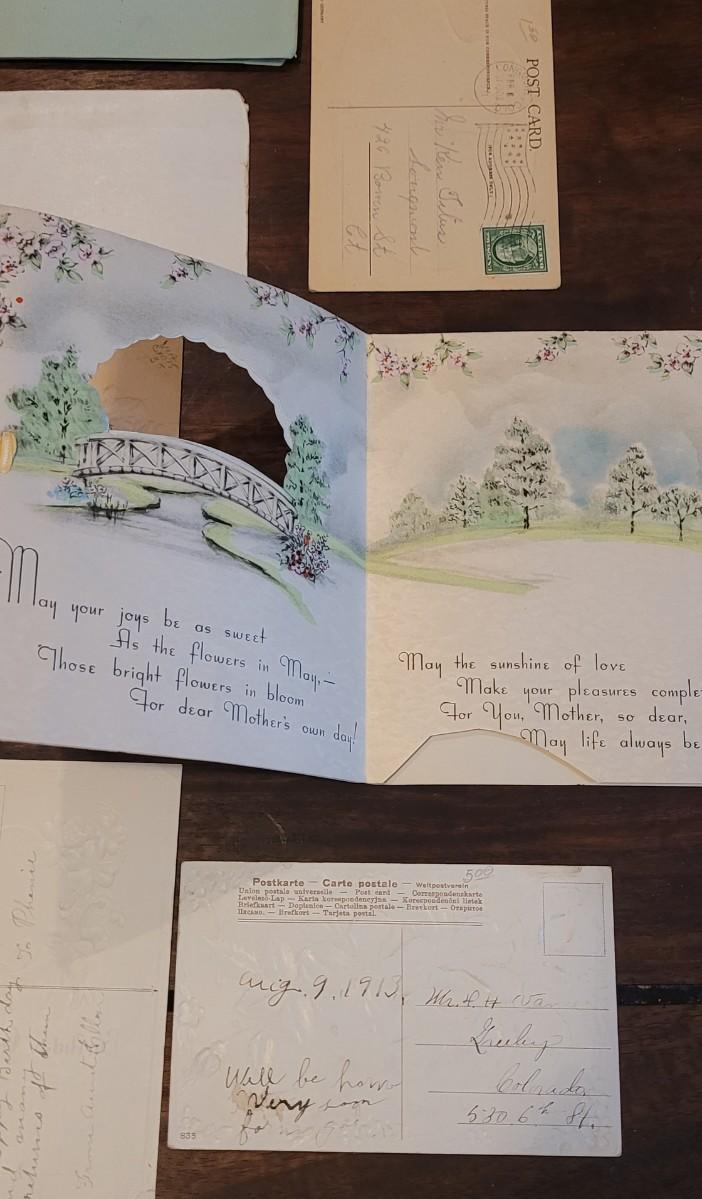 POST CARD.
150
Longmont
426 Bowen St
May your joys be as sweet
As the flowers in May,—
Those bright flowers in bloom
For dear Mother's own day!
May the sunshine of love
Make your pleasures comple
For You, Mother, so dear,
May life always be
500
Postkarte — Carte postale — Weltpostverein
Union postale universelle — Post card — Correspondenzkarte
Levelező-Lap — Karta korespondencyjna — Korespondenční lístek
Briefkaart — Dopisnice — Cartolina postale — Brevkort — Открытое
письмо. — Brefkort — Tarjeta postal.
Aug. 9, 1913.
Will be home
Very soon
Mr. F. H. Van
Greeley
Colorado
530 6th St.
835
To
Birthday
many
returns of them
From Aunt